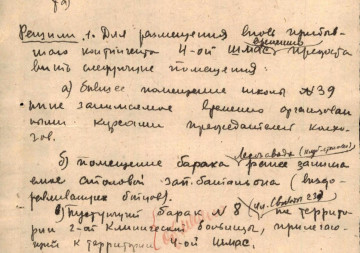 Решили: 1. Для размещения вновь прибыв-
шего контингента 4-ой ШМАС временно предоста
вить следующие помещения:
а) бывшее помещение школы №39
ныне занимаемое временно организован
ными курсами председателей колхо-
зов.
б) помещение барака Лесозавода ранее занима
емое столовой зап. батальона (выздо-
равливающих бойцов).
в) Пустующий барак №8 на территор
рии 2-ой Клинической больницы, прилегаю-
щий к территории 4-ой ШМАС.